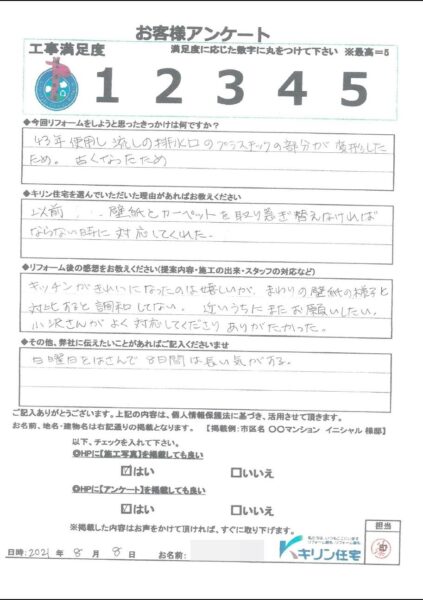 お客様アンケート
工事満足度 満足度に応じた数字に丸をつけて下さい ※最高=5
1 2 3 4 5
◆今回リフォームをしようと思ったきっかけは何ですか?
43年使用し流しの排水口のプラスチックの部分が変形した
ため。 古くなったため
◆キリン住宅を選んでいただいた理由があればお教えください
以前、、壁紙とカーペットを取り急ぎ替えなければ
ならない時に対応してくれた
◆リフォーム後の感想をお教えください(提案内容・施工の出来・スタッフの対応など)
キッチンがきれいになったのは嬉しいが、まわりの壁紙の様子と
対比すると調和してない。 近いうちにまたお願いしたい。
小沢さんがよく対応してくださりありがたかった。
◆その他、弊社に伝えたいことがあればご記入くださいませ
日曜日をはさんで8日間は長い気がする。
ご記入ありがとうございます。上記の内容は、個人情報保護法に基づき、活用させて頂きます。
お名前、地名・建物名は右記通りの掲載となります。 【掲載例:市区名 〇〇マンション イニシャル 様邸】
以下、チェックを入れて下さい。
◎HPに【施工写真】を掲載しても良い
☑はい □いいえ
◎HPに【アンケート】を掲載しても良い
☑はい □いいえ
※掲載した内容はお声をかけて頂ければ、すぐに取り下げます。
担当
キリン住宅
日時:2021年 8月 8日 お名前: